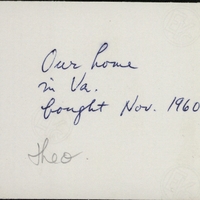 Our home
in Va.
bought Nov. 1960
Theo.